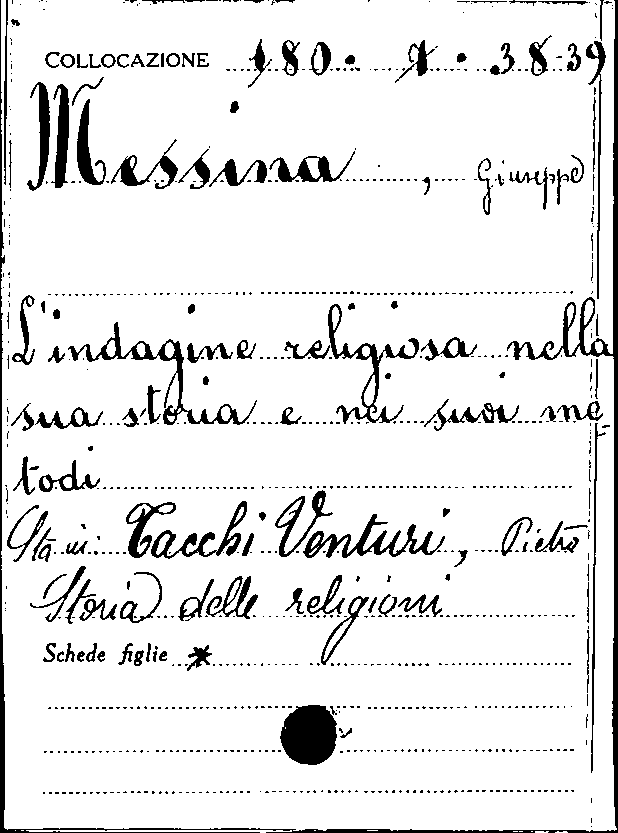 COLLOCAZIONE 180. 1. 38-39
Messina, Giuseppe
L'indagine religiosa nella
sua storia e nei suoi me-
todi
Sta in: Tacchi Venturi, Pietro
Storia delle religioni
Schede figlie *